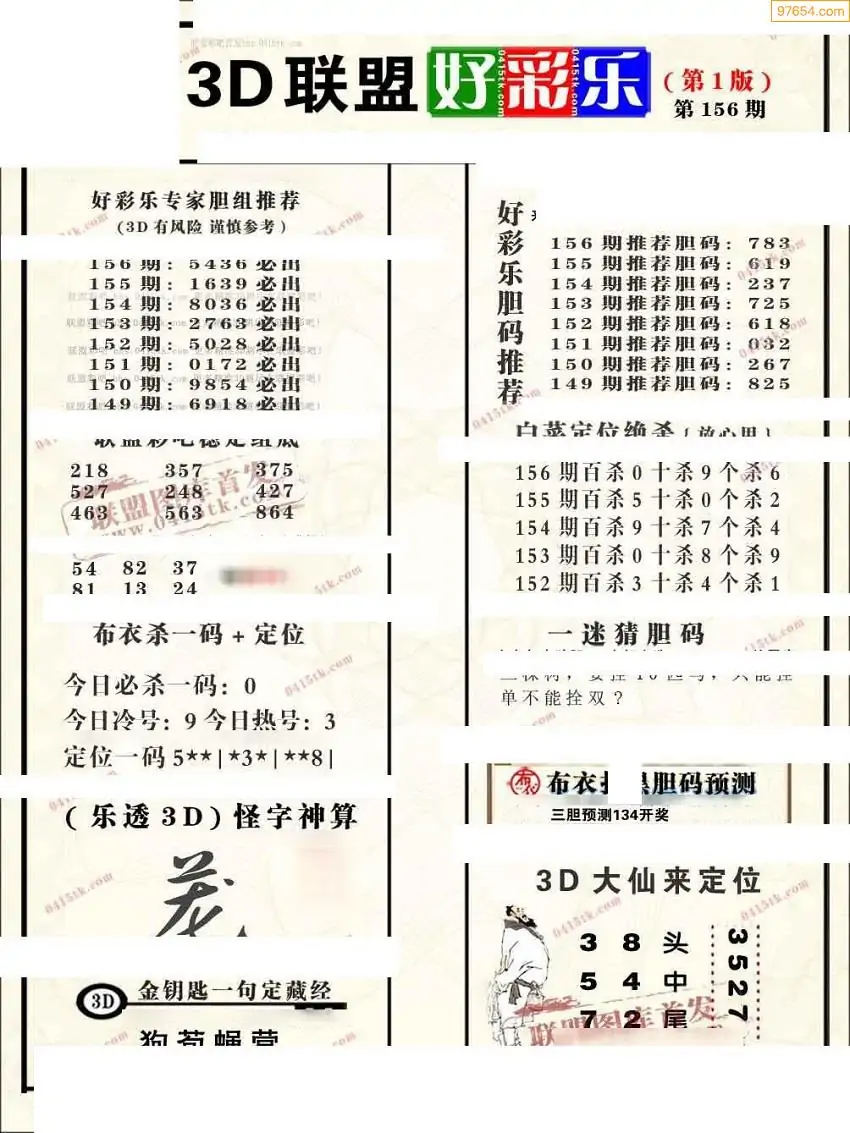 97654.com
3D联盟好彩乐(第1版)
0415tk.com 0415tk.com
第156期
好彩乐专家胆组推荐
(3D有风险 谨慎参考)
156期:5436必出
155期:1639必出
154期:8036必出
153期:2763必出
152期:5028必出
151期:0172必出
150期:9854必出
149期:6918必出
联盟彩吧稳定组底
218 357 375
527 248 427
463 563 864
联盟图库首发
www.0415tk.com
54 82 37
81 13 24
布衣杀一码+定位
今日必杀一码:0
今日冷号:9今日热号:3
定位一码5**|*3*|**8|
(乐透3D)怪字神算
3D 金钥匙一句定藏经
狗苟蝇营
好彩乐胆码推荐
156期推荐胆码:783
155期推荐胆码:619
154期推荐胆码:237
153期推荐胆码:725
152期推荐胆码:618
151期推荐胆码:032
150期推荐胆码:267
149期推荐胆码:825
白菜定位绝杀(放心用)
156期百杀0十杀9个杀6
155期百杀5十杀0个杀2
154期百杀9十杀7个杀4
153期百杀0十杀8个杀9
152期百杀3十杀4个杀1
一迷猜胆码
三棵树,要拴10匹马,只能拴
单不能拴双?
布衣 胆码预测
三胆预测134开奖
3D大仙来定位
3 8 头
5 4 中
7 2 尾
3527
联盟图库首发
0415tk.com